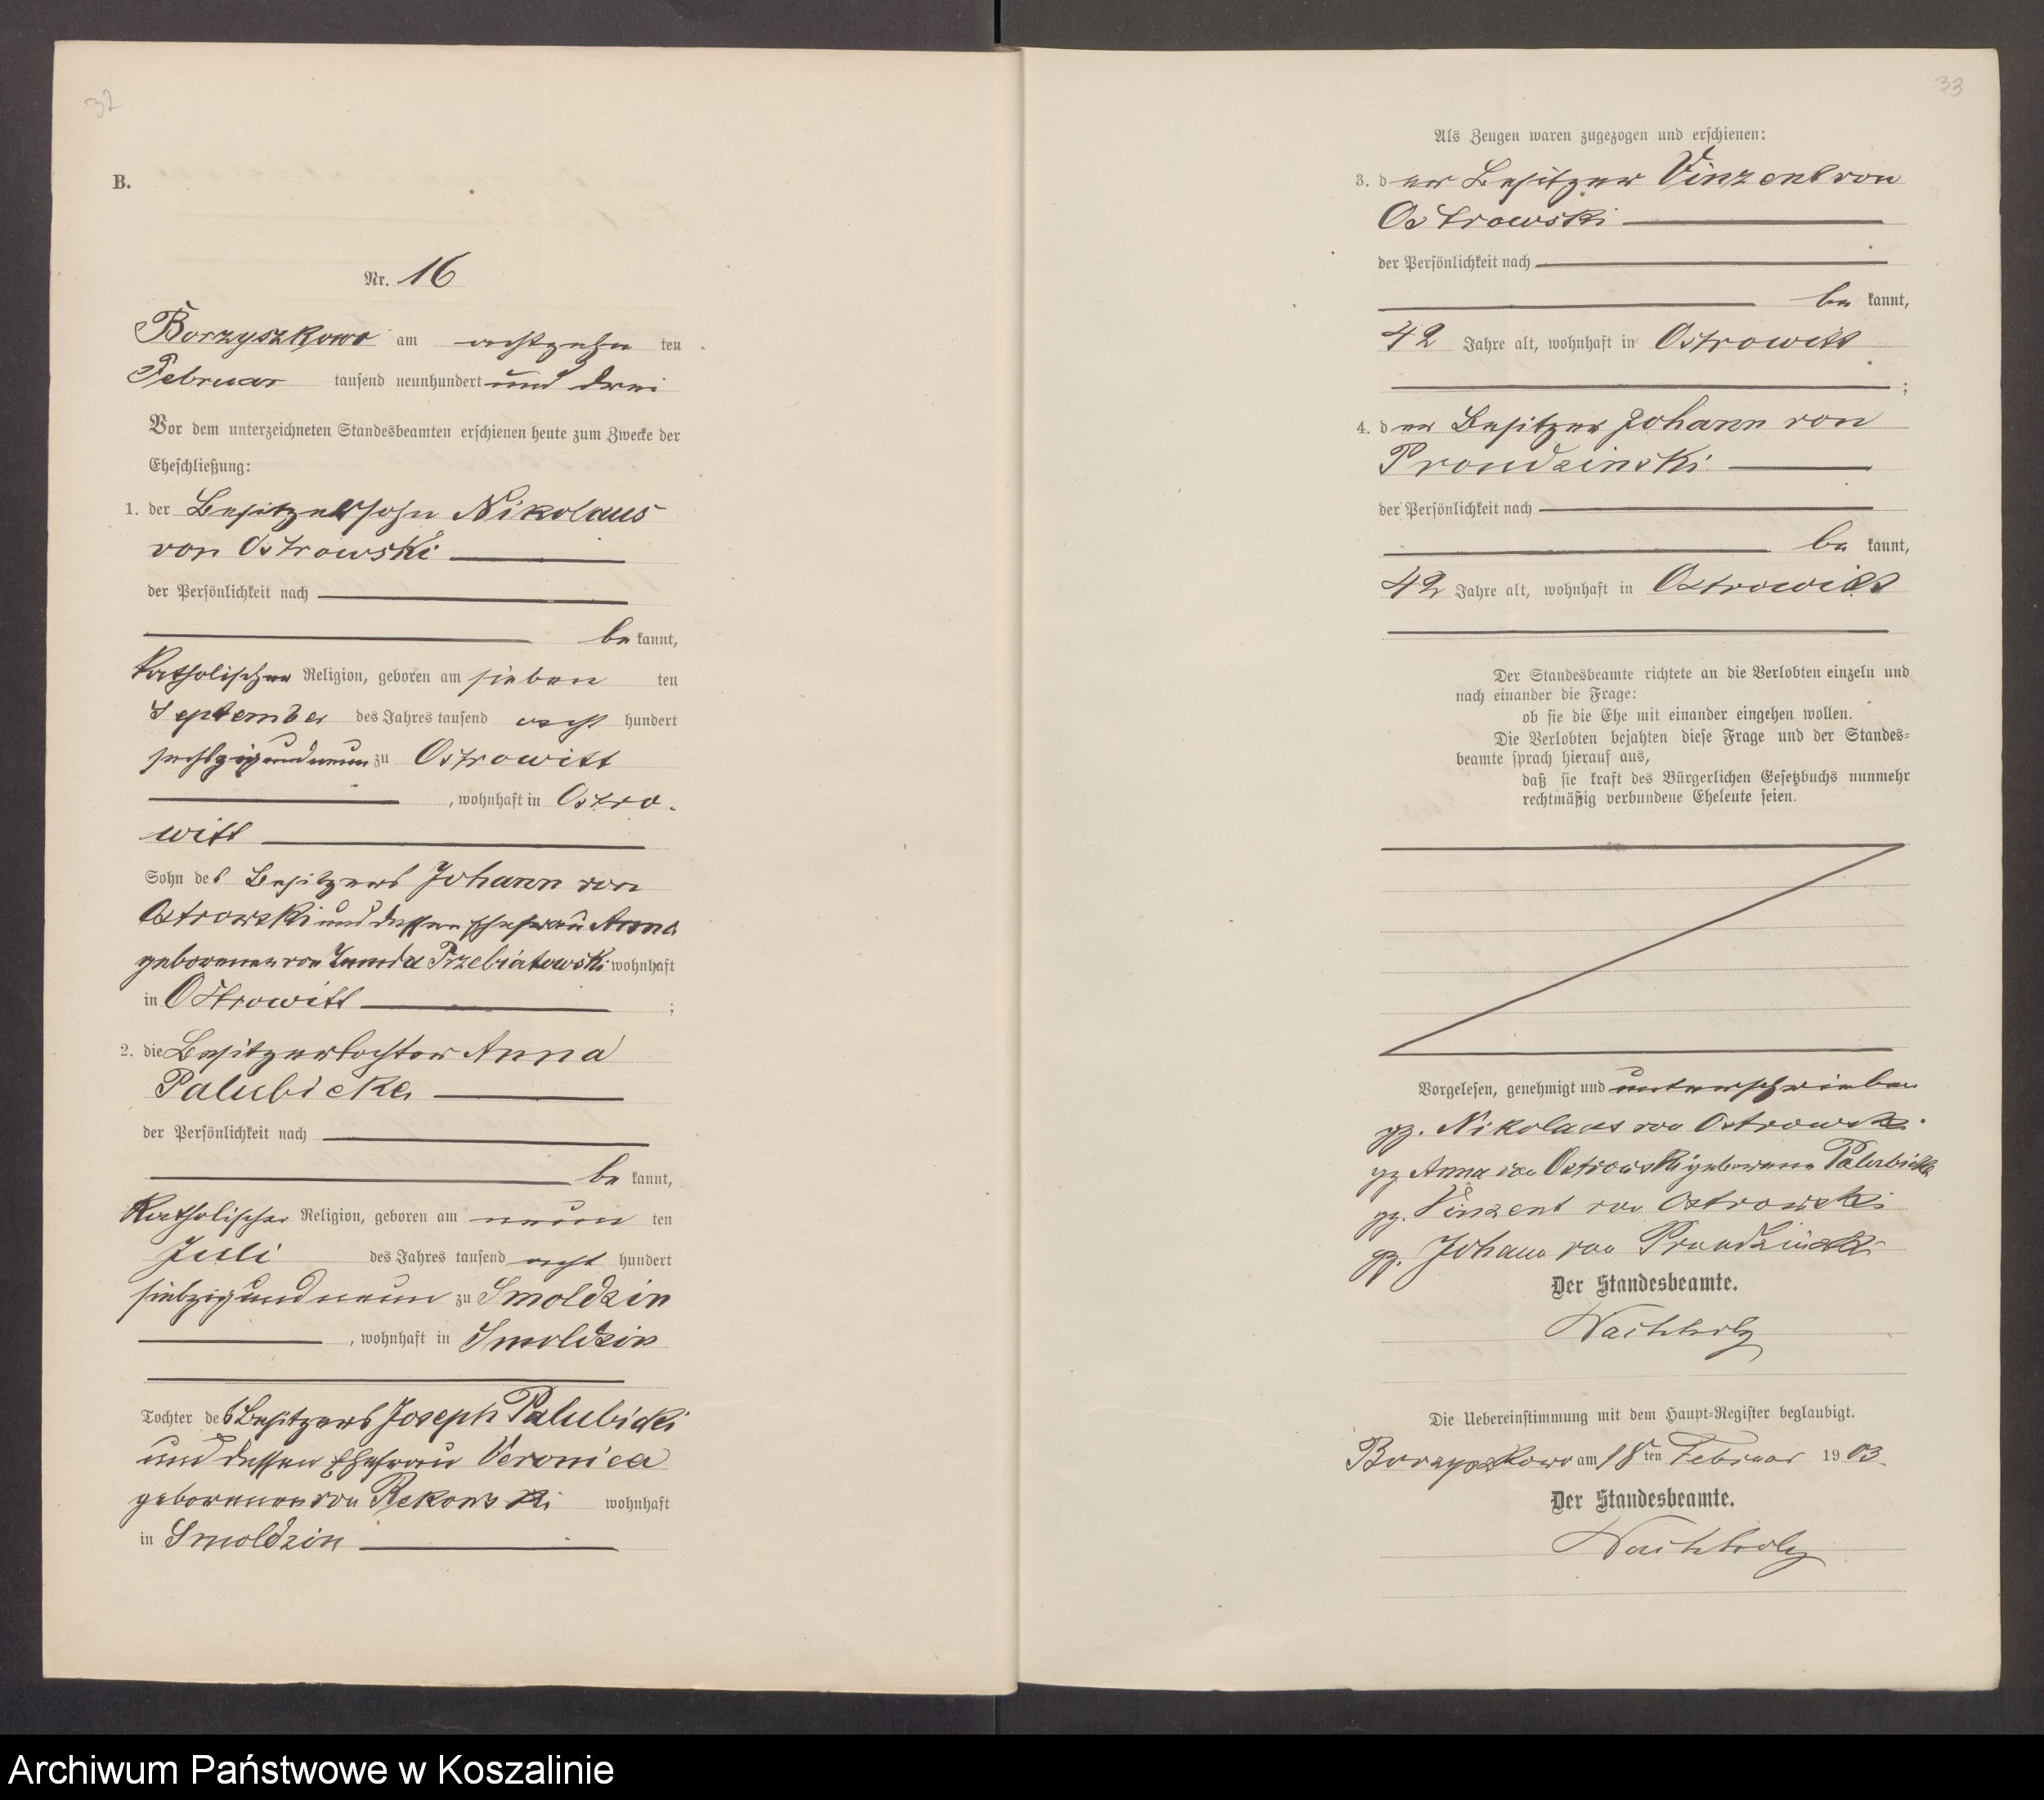 32
B.
Nr. 16
Borzyszkowo am achtzehn ten
Februar tausend neunhundert und drei
Vor dem unterzeichneten Standesbeamten erschienen heute zum Zwecke der
Eheschließung:
1. der Besitzersohn Nikolaus
von Ostrowski
der Persönlichkeit nach
be kannt,
katholischer Religion, geboren am sieben ten
September des Jahres tausend acht hundert
sechszig und neun zu Ostrowitt
, wohnhaft in Ostro-
witt
Sohn des Besitzers Johann von
Ostrowski und dessen Ehefrau Anna
geborenen von Trzebiatowski wohnhaft
in Ostrowitt ;
2. die Besitzertochter Anna
Palubicka
der Persönlichkeit nach
be kannt,
katholischer Religion, geboren am neun ten
Juli des Jahres tausend acht hundert
siebzig und neun zu Smoldzin
, wohnhaft in Smoldzin
Tochter des Besitzers Joseph Palubicki
und dessen Ehefrau Veronica
geborenen von Rekowski wohnhaft
in Smoldzin
33
Als Zeugen waren zugezogen und erschienen:
3. der Besitzer Vinzent von
Ostrowski
der Persönlichkeit nach
be kannt,
42 Jahre alt, wohnhaft in Ostrowitt
;
4. der Besitzer Johann von
Prondzinski
der Persönlichkeit nach
be kannt,
42 Jahre alt, wohnhaft in Ostrowitt
Der Standesbeamte richtete an die Verlobten einzeln und
nach einander die Frage:
ob sie die Ehe mit einander eingehen wollen.
Die Verlobten bejahten diese Frage und der Standes-
beamte sprach hierauf aus,
daß sie kraft des Bürgerlichen Gesetzbuchs nunmehr
rechtmäßig verbundene Eheleute seien.
Vorgelesen, genehmigt und unterschrieben
gz. Nikolaus von Ostrowski.
gz. Anna von Ostrowski geborene Palubicka
gz. Vinzent von Ostrowski
gz. Johann von Prondzinski
Der Standesbeamte.
Wachholz
Die Uebereinstimmung mit dem Haupt-Register beglaubigt.
Borzyszkowo am 18 ten Februar 19 03.
Der Standesbeamte.
Wachholz
Archiwum Państwowe w Koszalinie